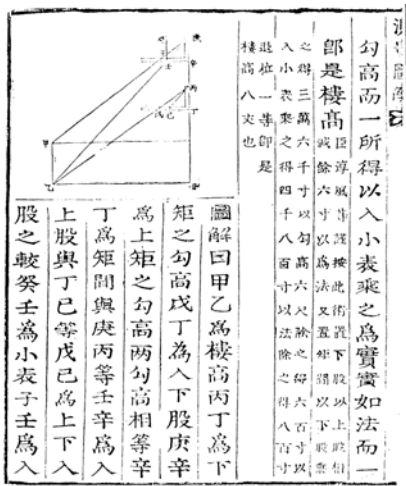 勾高而一所得以入小表乘之為實實如法而一
卽是樓高
臣淳風等謹按此術置下股以上股相
減餘六寸以為法又置矩間以下股乘
之得三萬六千寸以勾高六尺除之得六百寸以
入小表乘之得四千八百寸以法除之得八百寸
退位一等卽是
樓高八丈也
庚
辛
壬
丙
丁
戊己
甲
乙
圖解曰甲乙為樓高丙丁為下
矩之勾高戊丁為入下股庚辛
為上矩之勾高兩勾高相等辛
丁為矩間與庚丙等壬辛為入
上股與丁己等戊己為上下入
股之較癸壬為小表子壬為入